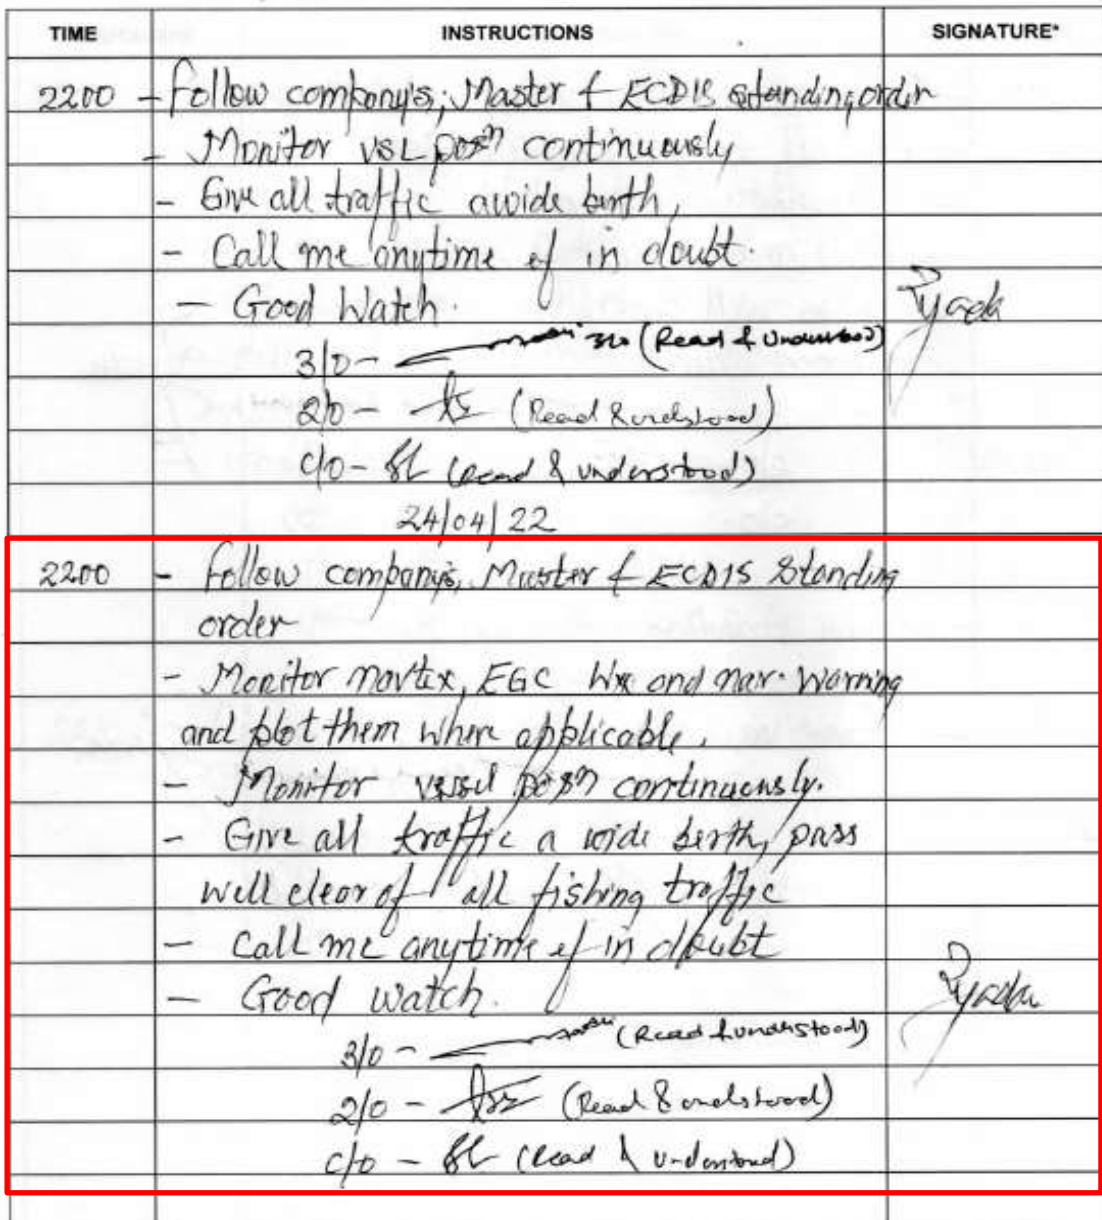 TIME INSTRUCTIONS SIGNATURE*
2200 - Follow company's, Master & ECDIS standing order
- Monitor VSL posn continuously
- Give all traffic a wide birth,
- Call me anytime if in doubt.
- Good Watch.
3/O - 3/O (Read & Understood)
2/O - (Read & understood)
C/O - (Read & understood)
24/04/22
2200 - Follow company's, Master & ECDIS Standing
order
- Monitor navtex, EGC Wx and nav. Warning
and plot them where applicable.
- Monitor vessel posn continuously.
- Give all traffic a wide berth, pass
well clear of all fishing traffic
- Call me anytime if in doubt
- Good watch.
3/O - (Read & understood)
2/O - (Read & understood)
C/O - (Read & understood)